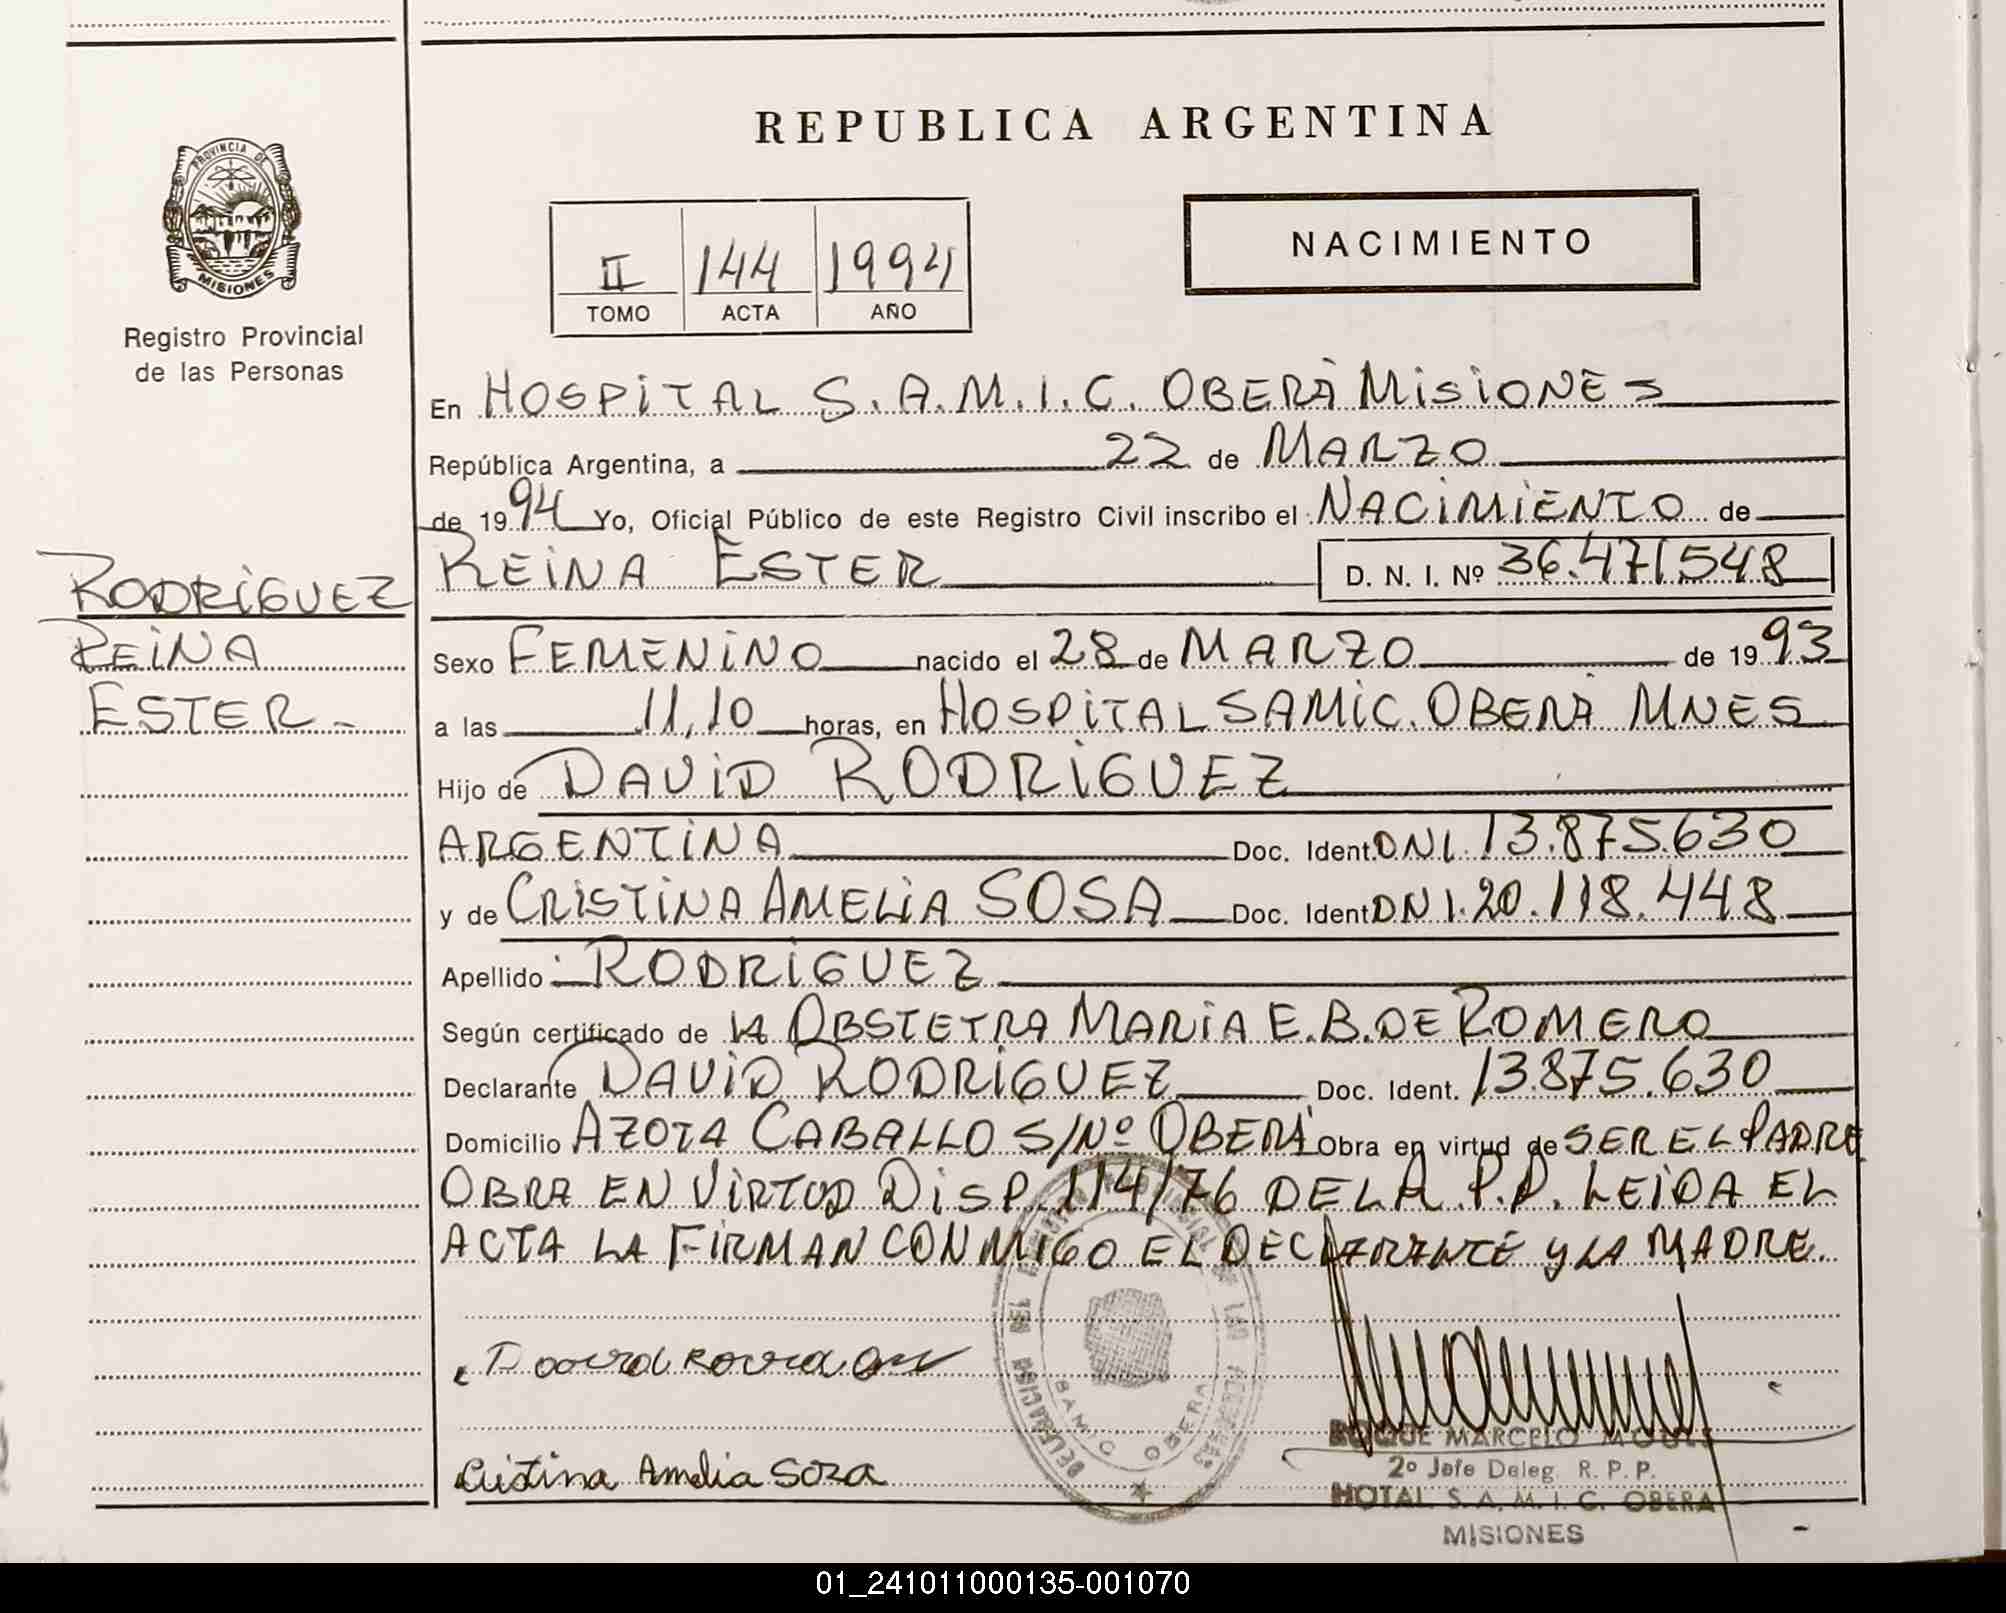 REPUBLICA ARGENTINA
PROVINCIA DE
MISIONES
Registro Provincial
de las Personas
II 144 1994
TOMO ACTA AÑO
NACIMIENTO
En HOSPITAL S.A.M.I.C. OBERÁ MISIONES
República Argentina, a 22 de MARZO
de 1994 Yo, Oficial Público de este Registro Civil inscribo el NACIMIENTO de
REINA ESTER D. N. I. Nº 36.471548
RODRIGUEZ
REINA
ESTER -
Sexo FEMENINO nacido el 28 de MARZO de 1993
a las 11,10 horas, en HOSPITAL SAMIC. OBERÁ MNES
Hijo de DAVID RODRIGUEZ
ARGENTINA Doc. Ident. DNI. 13.875.630
y de CRISTINA AMELIA SOSA Doc. Ident DNI. 20.118.448
Apellido RODRIGUEZ
Según certificado de la OBSTETRA MARIA E.B. DE ROMERO
Declarante DAVID RODRIGUEZ Doc. Ident. 13.875.630
Domicilio AZOTA CABALLO S/Nº OBERÁ Obra en virtud de SER EL PADRE
OBRA EN VIRTUD DISP. 114/76 DE LA R.P.P. LEIDA EL
ACTA LA FIRMAN CONMIGO EL DECLARANTE Y LA MADRE.
DELEGACION DEL REGISTRO PROVINCIAL DE LAS PERSONAS
SAMIC OBERA
Cristina Amelia Sosa
ROQUE MARCELO
2º Jefe Deleg. R. P. P.
HOTAL S. A. M. I. C. OBERA
MISIONES
01_241011000135-001070